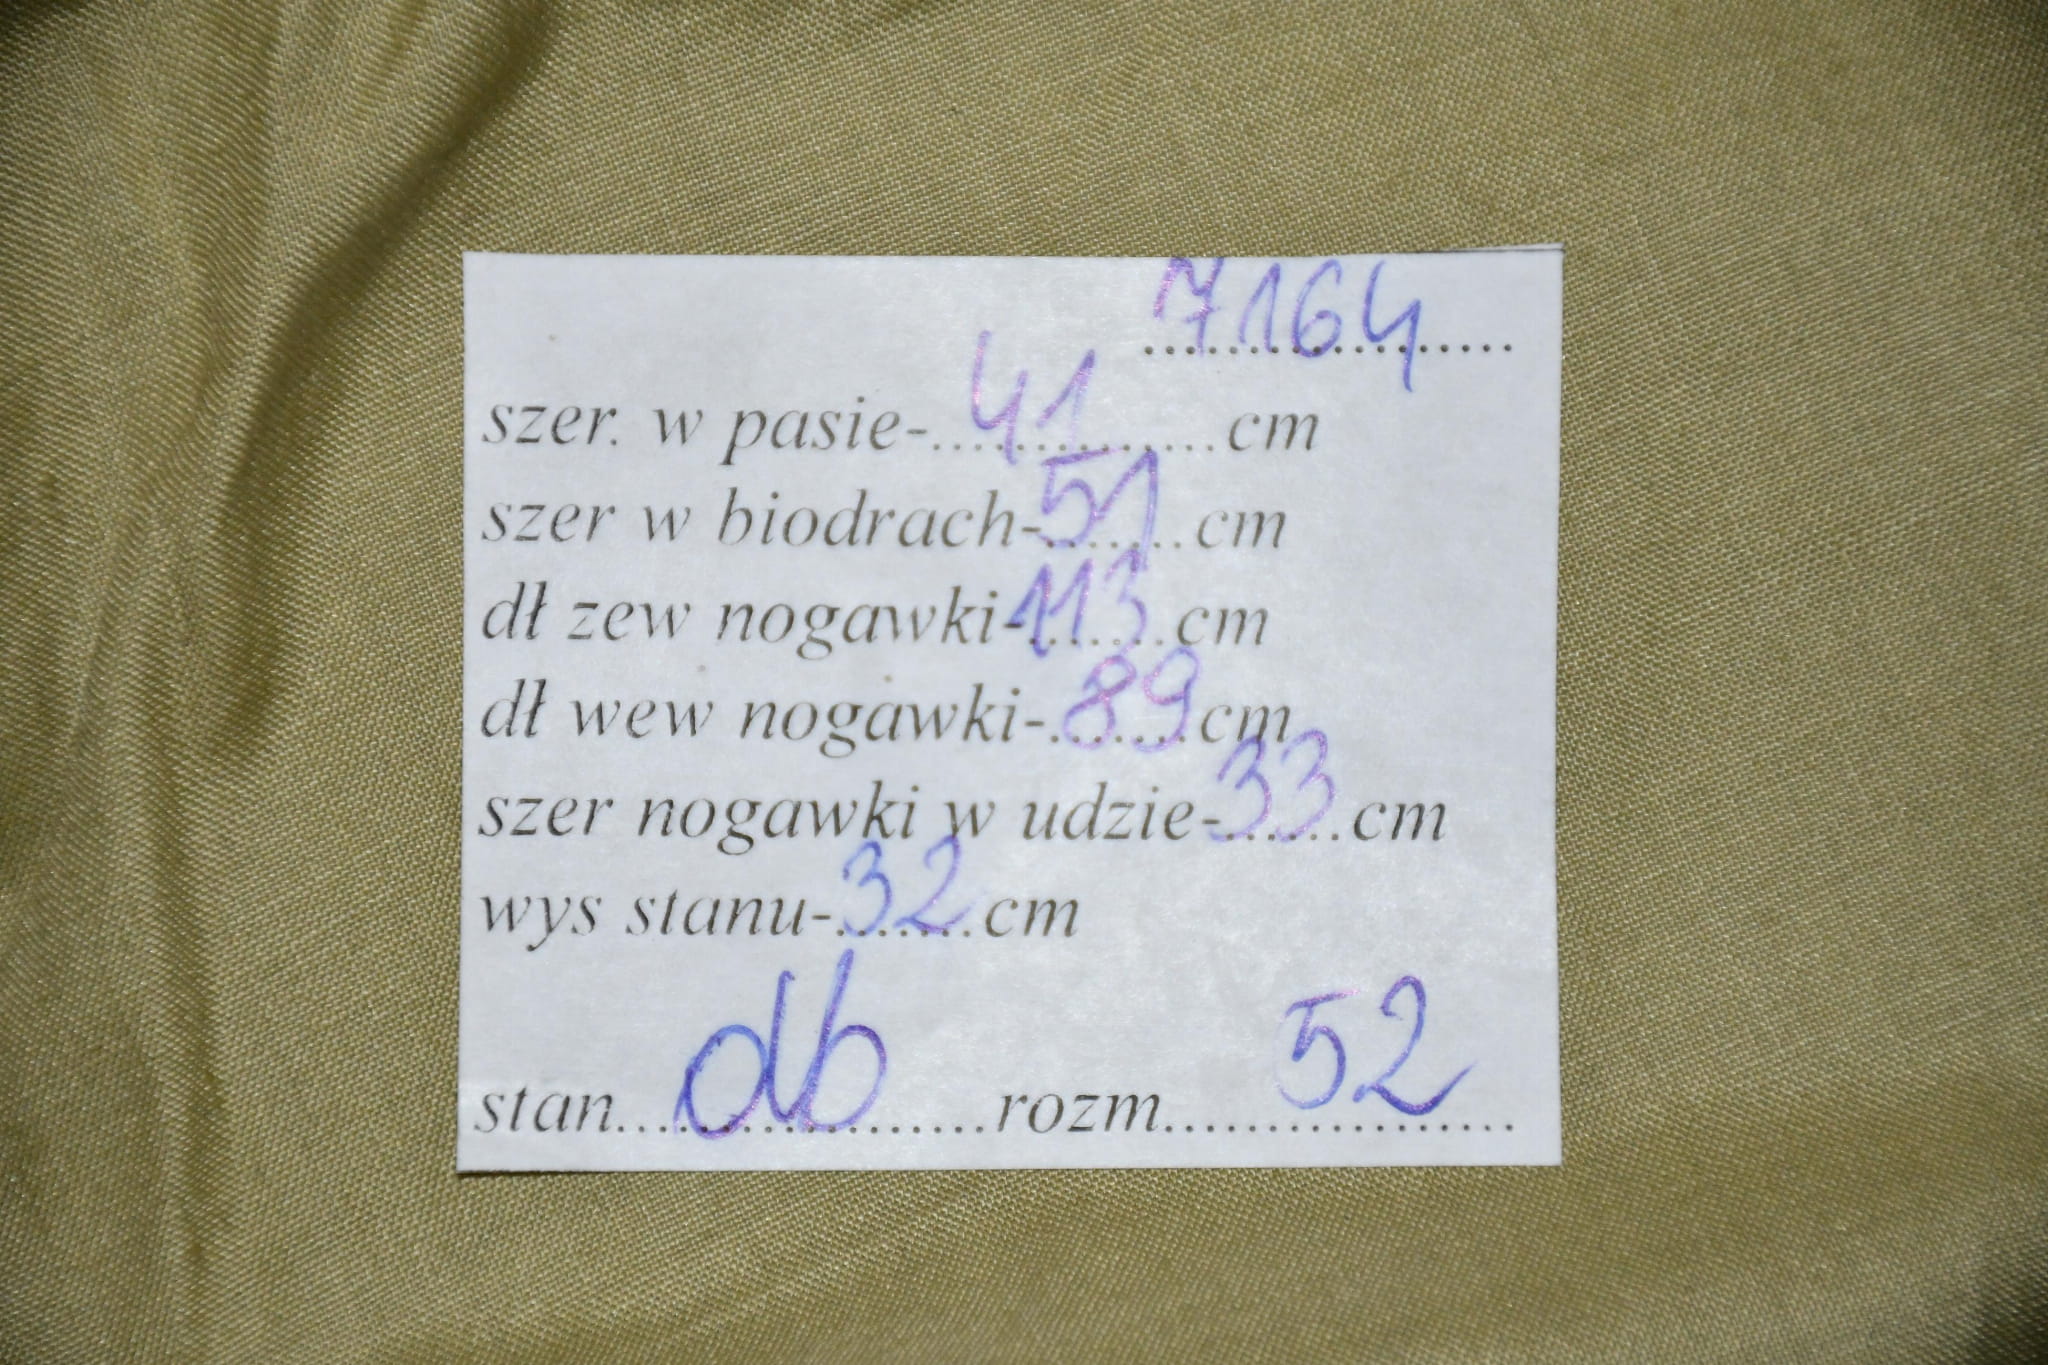 7164
szer. w pasie-41cm
szer w biodrach-51cm
dł zew nogawki-113cm
dł wew nogawki-89cm
szer nogawki w udzie-33cm
wys stanu-32cm
stan...db...rozm...52